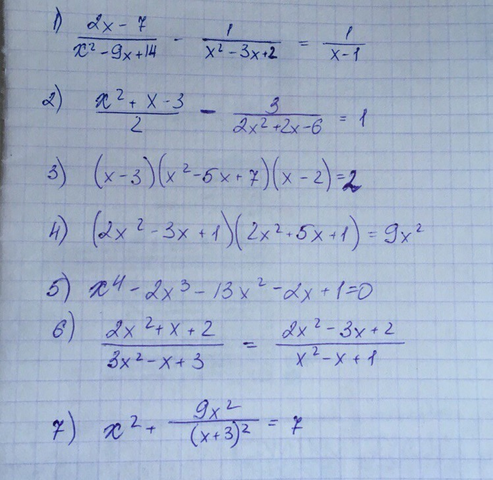 1) (2x - 7)/(x² - 9x + 14) - 1/(x² - 3x + 2) = 1/(x - 1)
2) (x² + x - 3)/2 - 3/(2x² + 2x - 6) = 1
3) (x - 3)(x² - 5x + 7)(x - 2) = 2
4) (2x² - 3x + 1)(2x² + 5x + 1) = 9x²
5) x⁴ - 2x³ - 13x² - 2x + 1 = 0
6) (2x² + x + 2)/(3x² - x + 3) = (2x² - 3x + 2)/(x² - x + 1)
7) x² + 9x²/(x + 3)² = 7